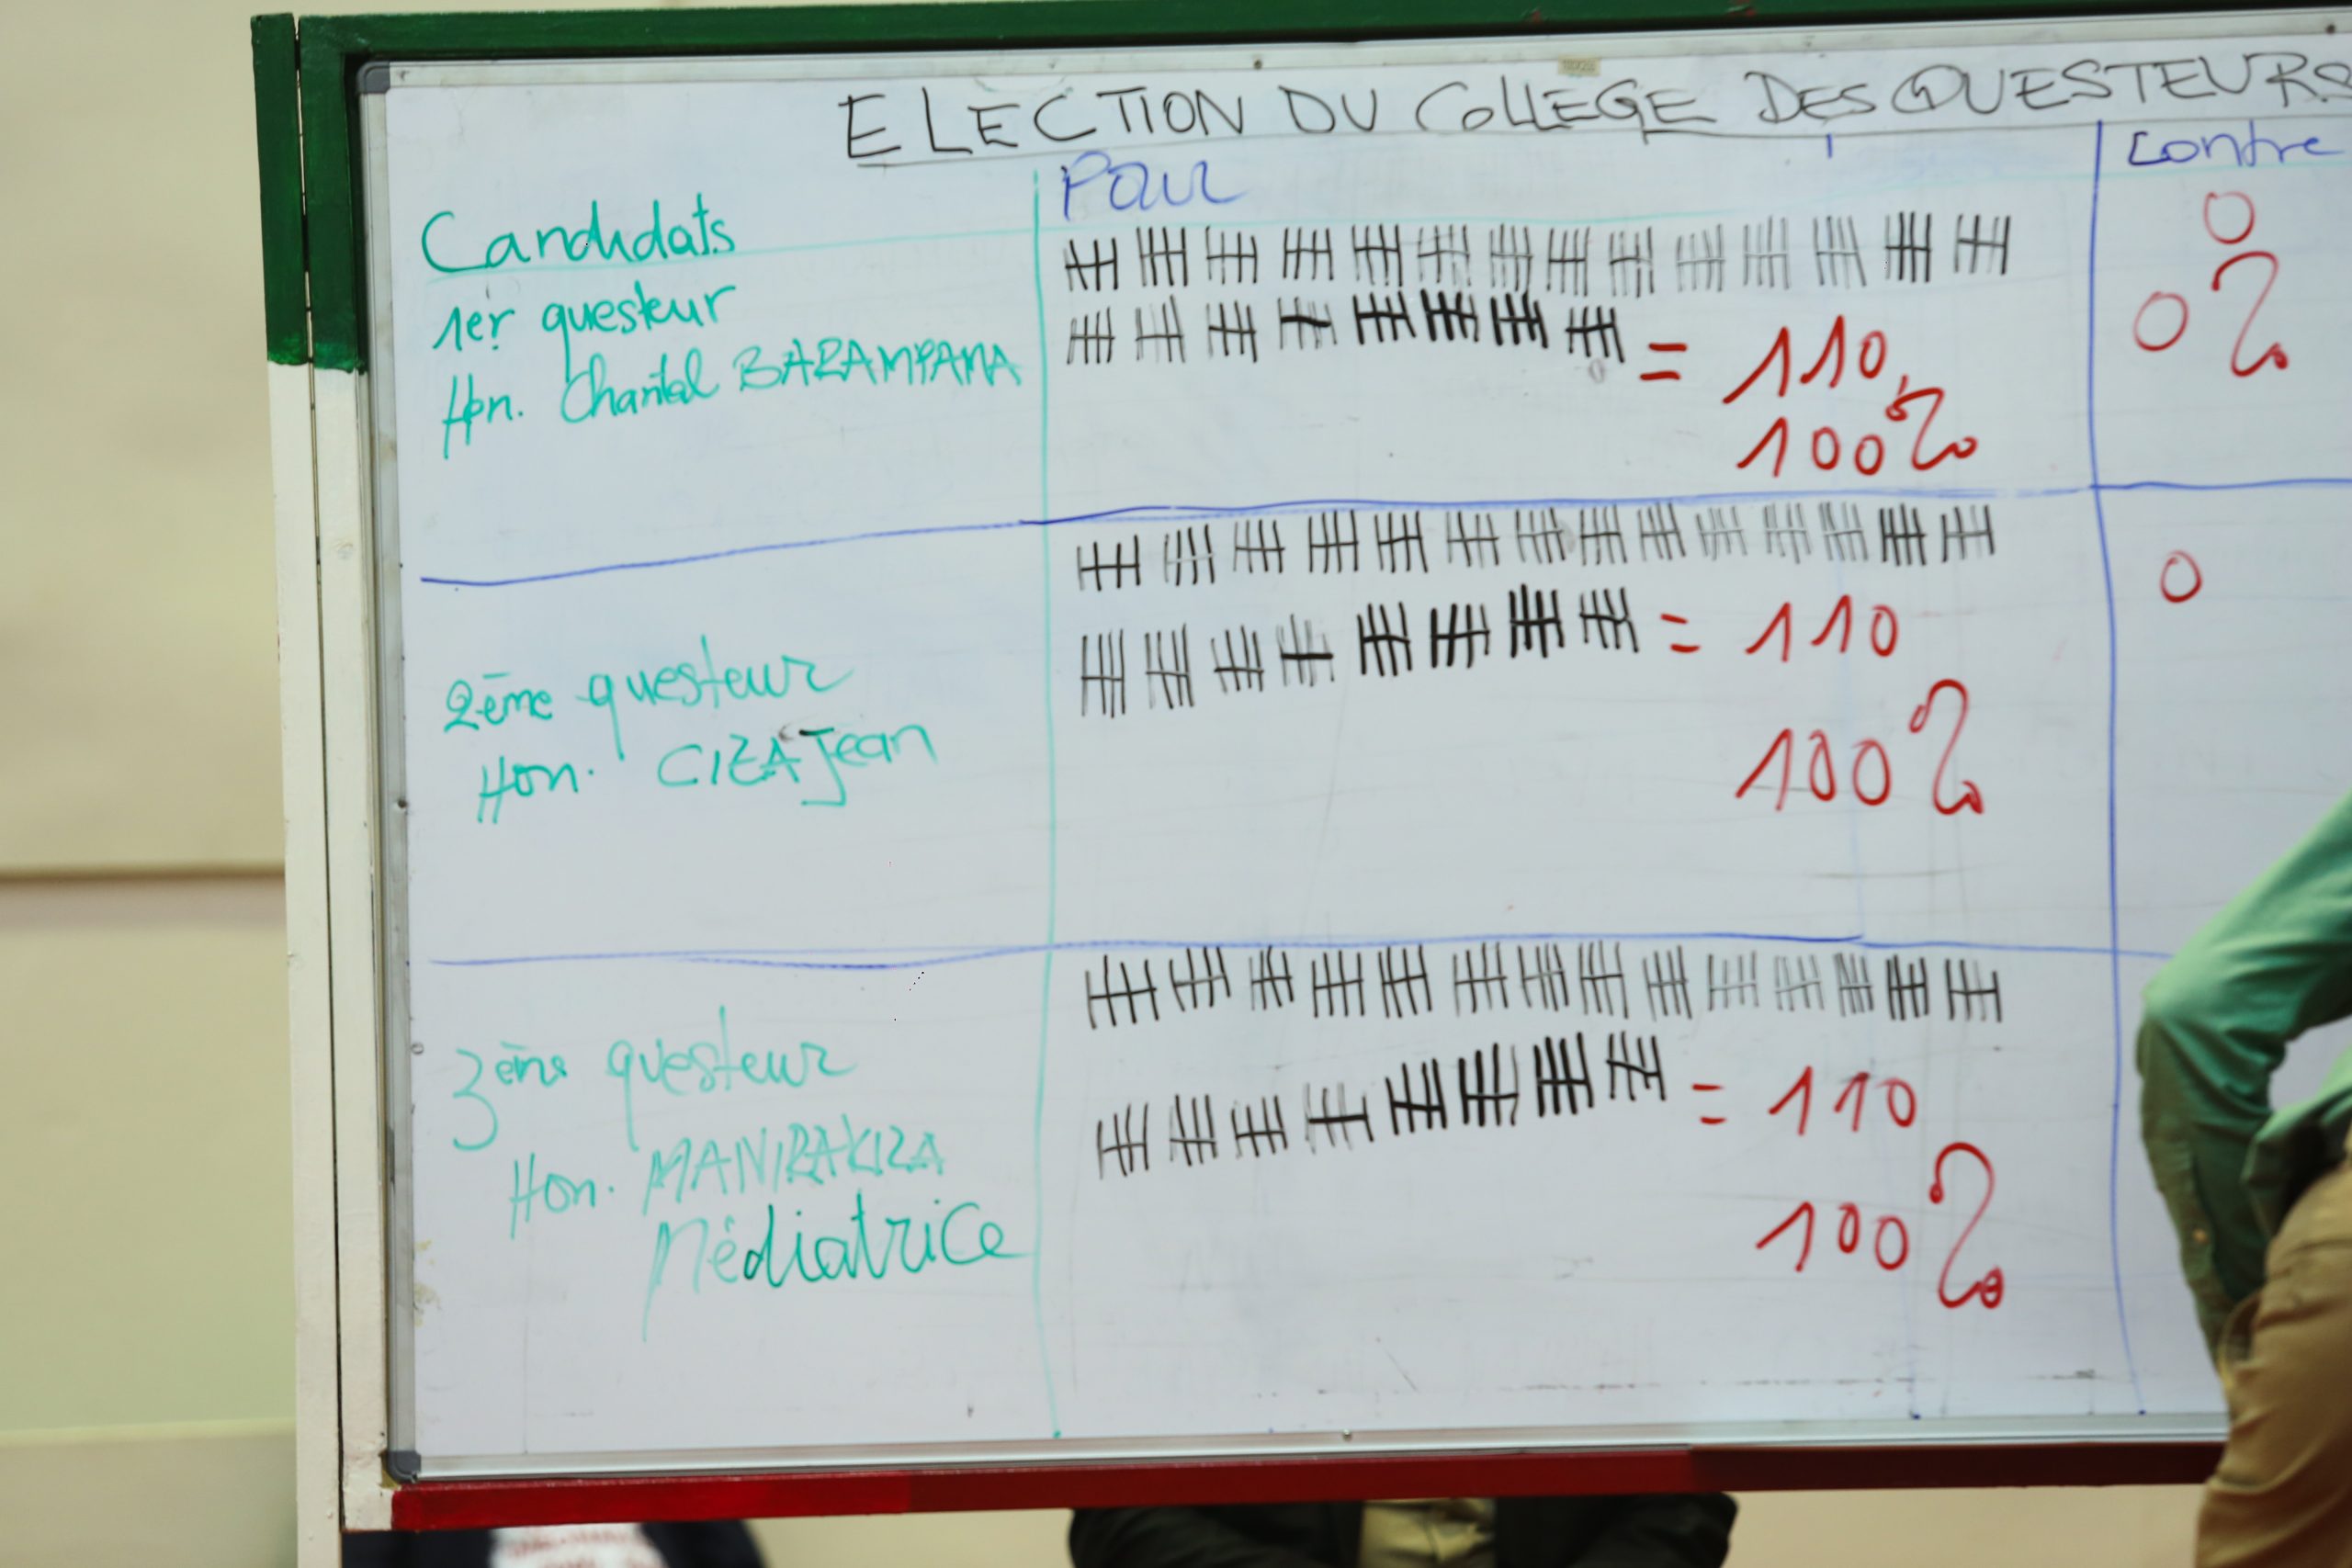 ELECTION DU COLLEGE DES QUESTEURS
Candidats
Pour
Contre
1er questeur
Hon. Chantal BARAMPAMA
= 110
100%
0
0%
2ème questeur
Hon. CIZA Jean
= 110
100%
0
3ème questeur
Hon. MANIRAKIZA
Médiatrice
= 110
100%